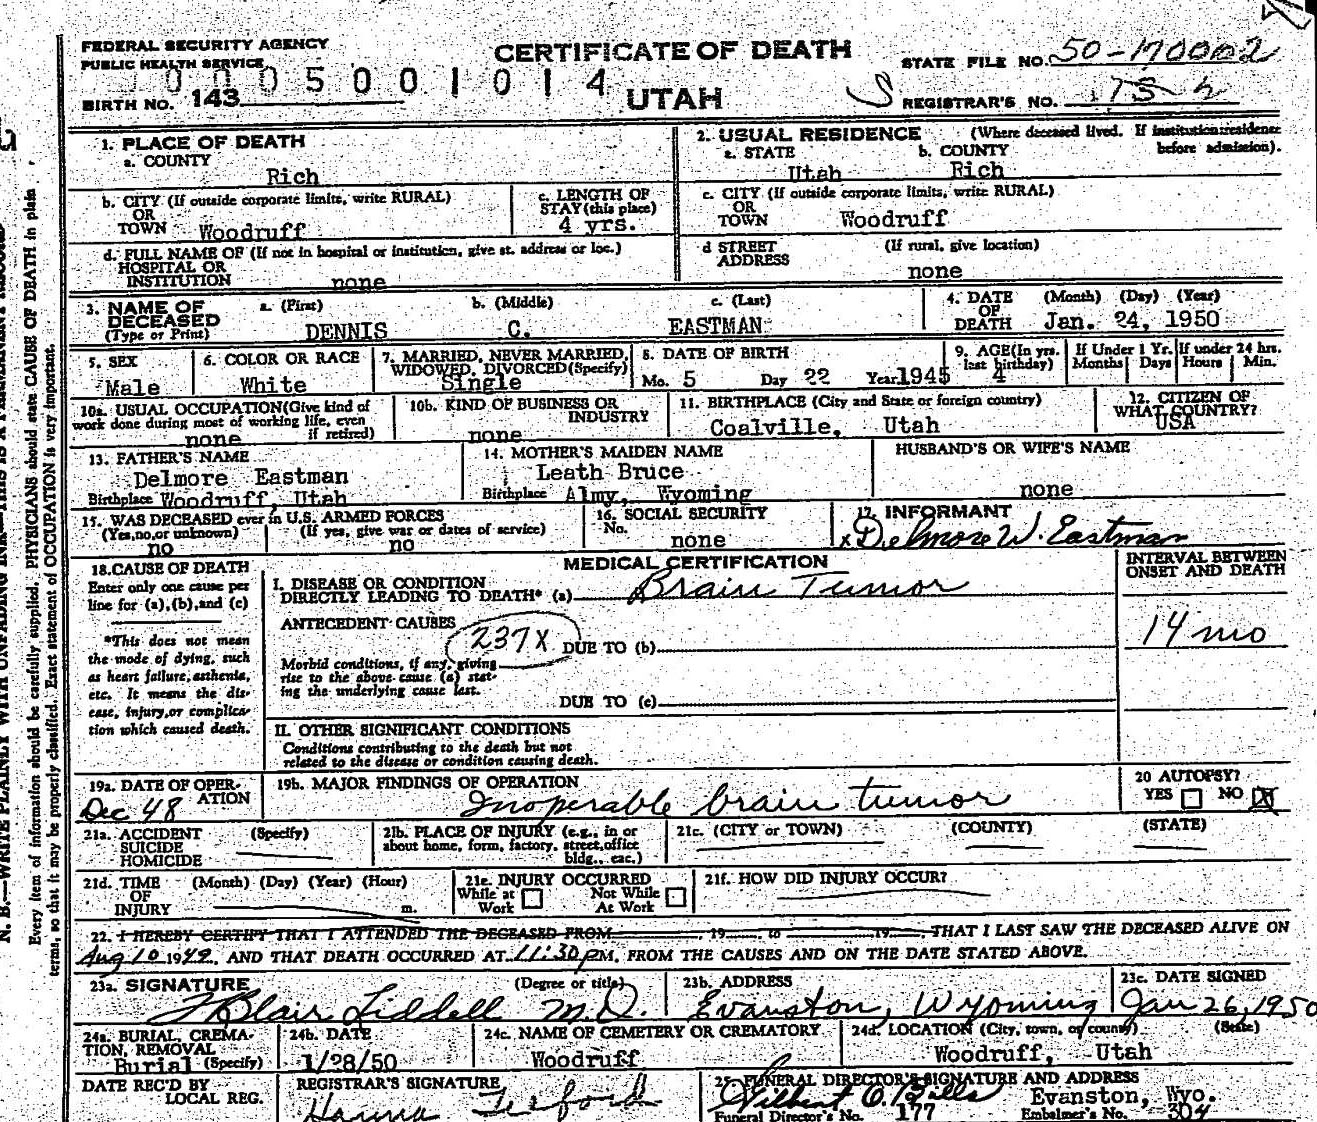 FEDERAL SECURITY AGENCY
PUBLIC HEALTH SERVICE
CERTIFICATE OF DEATH
STATE FILE NO. 50-170002
0005001014
BIRTH NO. 143
UTAH
REGISTRAR'S NO.
1. PLACE OF DEATH
a. COUNTY
Rich
2. USUAL RESIDENCE (Where deceased lived. If institution: residence before admission).
a. STATE b. COUNTY
Utah Rich
b. CITY (If outside corporate limits, write RURAL)
OR
TOWN Woodruff
c. LENGTH OF
STAY (this place)
4 yrs.
c. CITY (If outside corporate limits, write RURAL)
OR
TOWN Woodruff
d. FULL NAME OF (If not in hospital or institution, give st. address or loc.)
HOSPITAL OR
INSTITUTION none
d STREET (If rural, give location)
ADDRESS
none
3. NAME OF a. (First) b. (Middle) c. (Last)
DECEASED
(Type or Print) DENNIS C. EASTMAN
4. DATE (Month) (Day) (Year)
OF
DEATH Jan. 24, 1950
5. SEX
Male
6. COLOR OR RACE
White
7. MARRIED, NEVER MARRIED,
WIDOWED, DIVORCED (Specify)
Single
8. DATE OF BIRTH
Mo. 5 Day 22 Year 1945
9. AGE (In yrs.
last birthday)
4
If Under 1 Yr.
Months Days
If under 24 hrs.
Hours Min.
10a. USUAL OCCUPATION (Give kind of
work done during most of working life, even
none if retired)
10b. KIND OF BUSINESS OR
INDUSTRY
none
11. BIRTHPLACE (City and State or foreign country)
Coalville, Utah
12. CITIZEN OF
WHAT COUNTRY?
USA
13. FATHER'S NAME
Delmore Eastman
Birthplace Woodruff, Utah
14. MOTHER'S MAIDEN NAME
Leath Bruce
Birthplace Almy, Wyoming
HUSBAND'S OR WIFE'S NAME
none
15. WAS DECEASED ever in U.S. ARMED FORCES
(Yes, no, or unknown) (If yes, give war or dates of service)
no no
16. SOCIAL SECURITY
No.
none
17. INFORMANT
x Delmore W. Eastman
18. CAUSE OF DEATH
Enter only one cause per
line for (a), (b), and (c)
*This does not mean
the mode of dying, such
as heart failure, asthenia,
etc. It means the dis-
ease, injury, or complica-
tion which caused death.
MEDICAL CERTIFICATION
I. DISEASE OR CONDITION
DIRECTLY LEADING TO DEATH* (a) Brain Tumor
ANTECEDENT CAUSES
237X
DUE TO (b)
Morbid conditions, if any, giving
rise to the above cause (a) stat-
ing the underlying cause last.
DUE TO (c)
II. OTHER SIGNIFICANT CONDITIONS
Conditions contributing to the death but not
related to the disease or condition causing death.
INTERVAL BETWEEN
ONSET AND DEATH
14 mo
19a. DATE OF OPER-
ATION
Dec 48
19b. MAJOR FINDINGS OF OPERATION
Inoperable brain tumor
20 AUTOPSY?
YES NO X
21a. ACCIDENT (Specify)
SUICIDE
HOMICIDE
21b. PLACE OF INJURY (e.g., in or
about home, form, factory, street, office
bldg., eac.)
21c. (CITY or TOWN) (COUNTY) (STATE)
21d. TIME (Month) (Day) (Year) (Hour)
OF
INJURY m.
21e. INJURY OCCURRED
While at Not While
Work At Work
21f. HOW DID INJURY OCCUR?
22. I HEREBY CERTIFY THAT I ATTENDED THE DECEASED FROM 19 , to 19 , THAT I LAST SAW THE DECEASED ALIVE ON
Aug 10 1949, AND THAT DEATH OCCURRED AT 11:30 pM, FROM THE CAUSES AND ON THE DATE STATED ABOVE.
23a. SIGNATURE (Degree or title)
J Blair Liddell M.D.
23b. ADDRESS
Evanston, Wyoming
23c. DATE SIGNED
Jan 26, 1950
24a. BURIAL, CREMA-
TION, REMOVAL
Burial (Specify)
24b. DATE
1/28/50
24c. NAME OF CEMETERY OR CREMATORY
Woodruff
24d. LOCATION (City, town, or county) (State)
Woodruff, Utah
DATE REC'D BY
LOCAL REG.
REGISTRAR'S SIGNATURE
25. FUNERAL DIRECTOR'S SIGNATURE AND ADDRESS
Evanston, Wyo.
Funeral Director's No. 177 Embalmer's No. 304
Every item of information should be carefully supplied. PHYSICIANS should state CAUSE OF DEATH in plain
terms, so that it may be properly classified. Exact statement of OCCUPATION is very important.